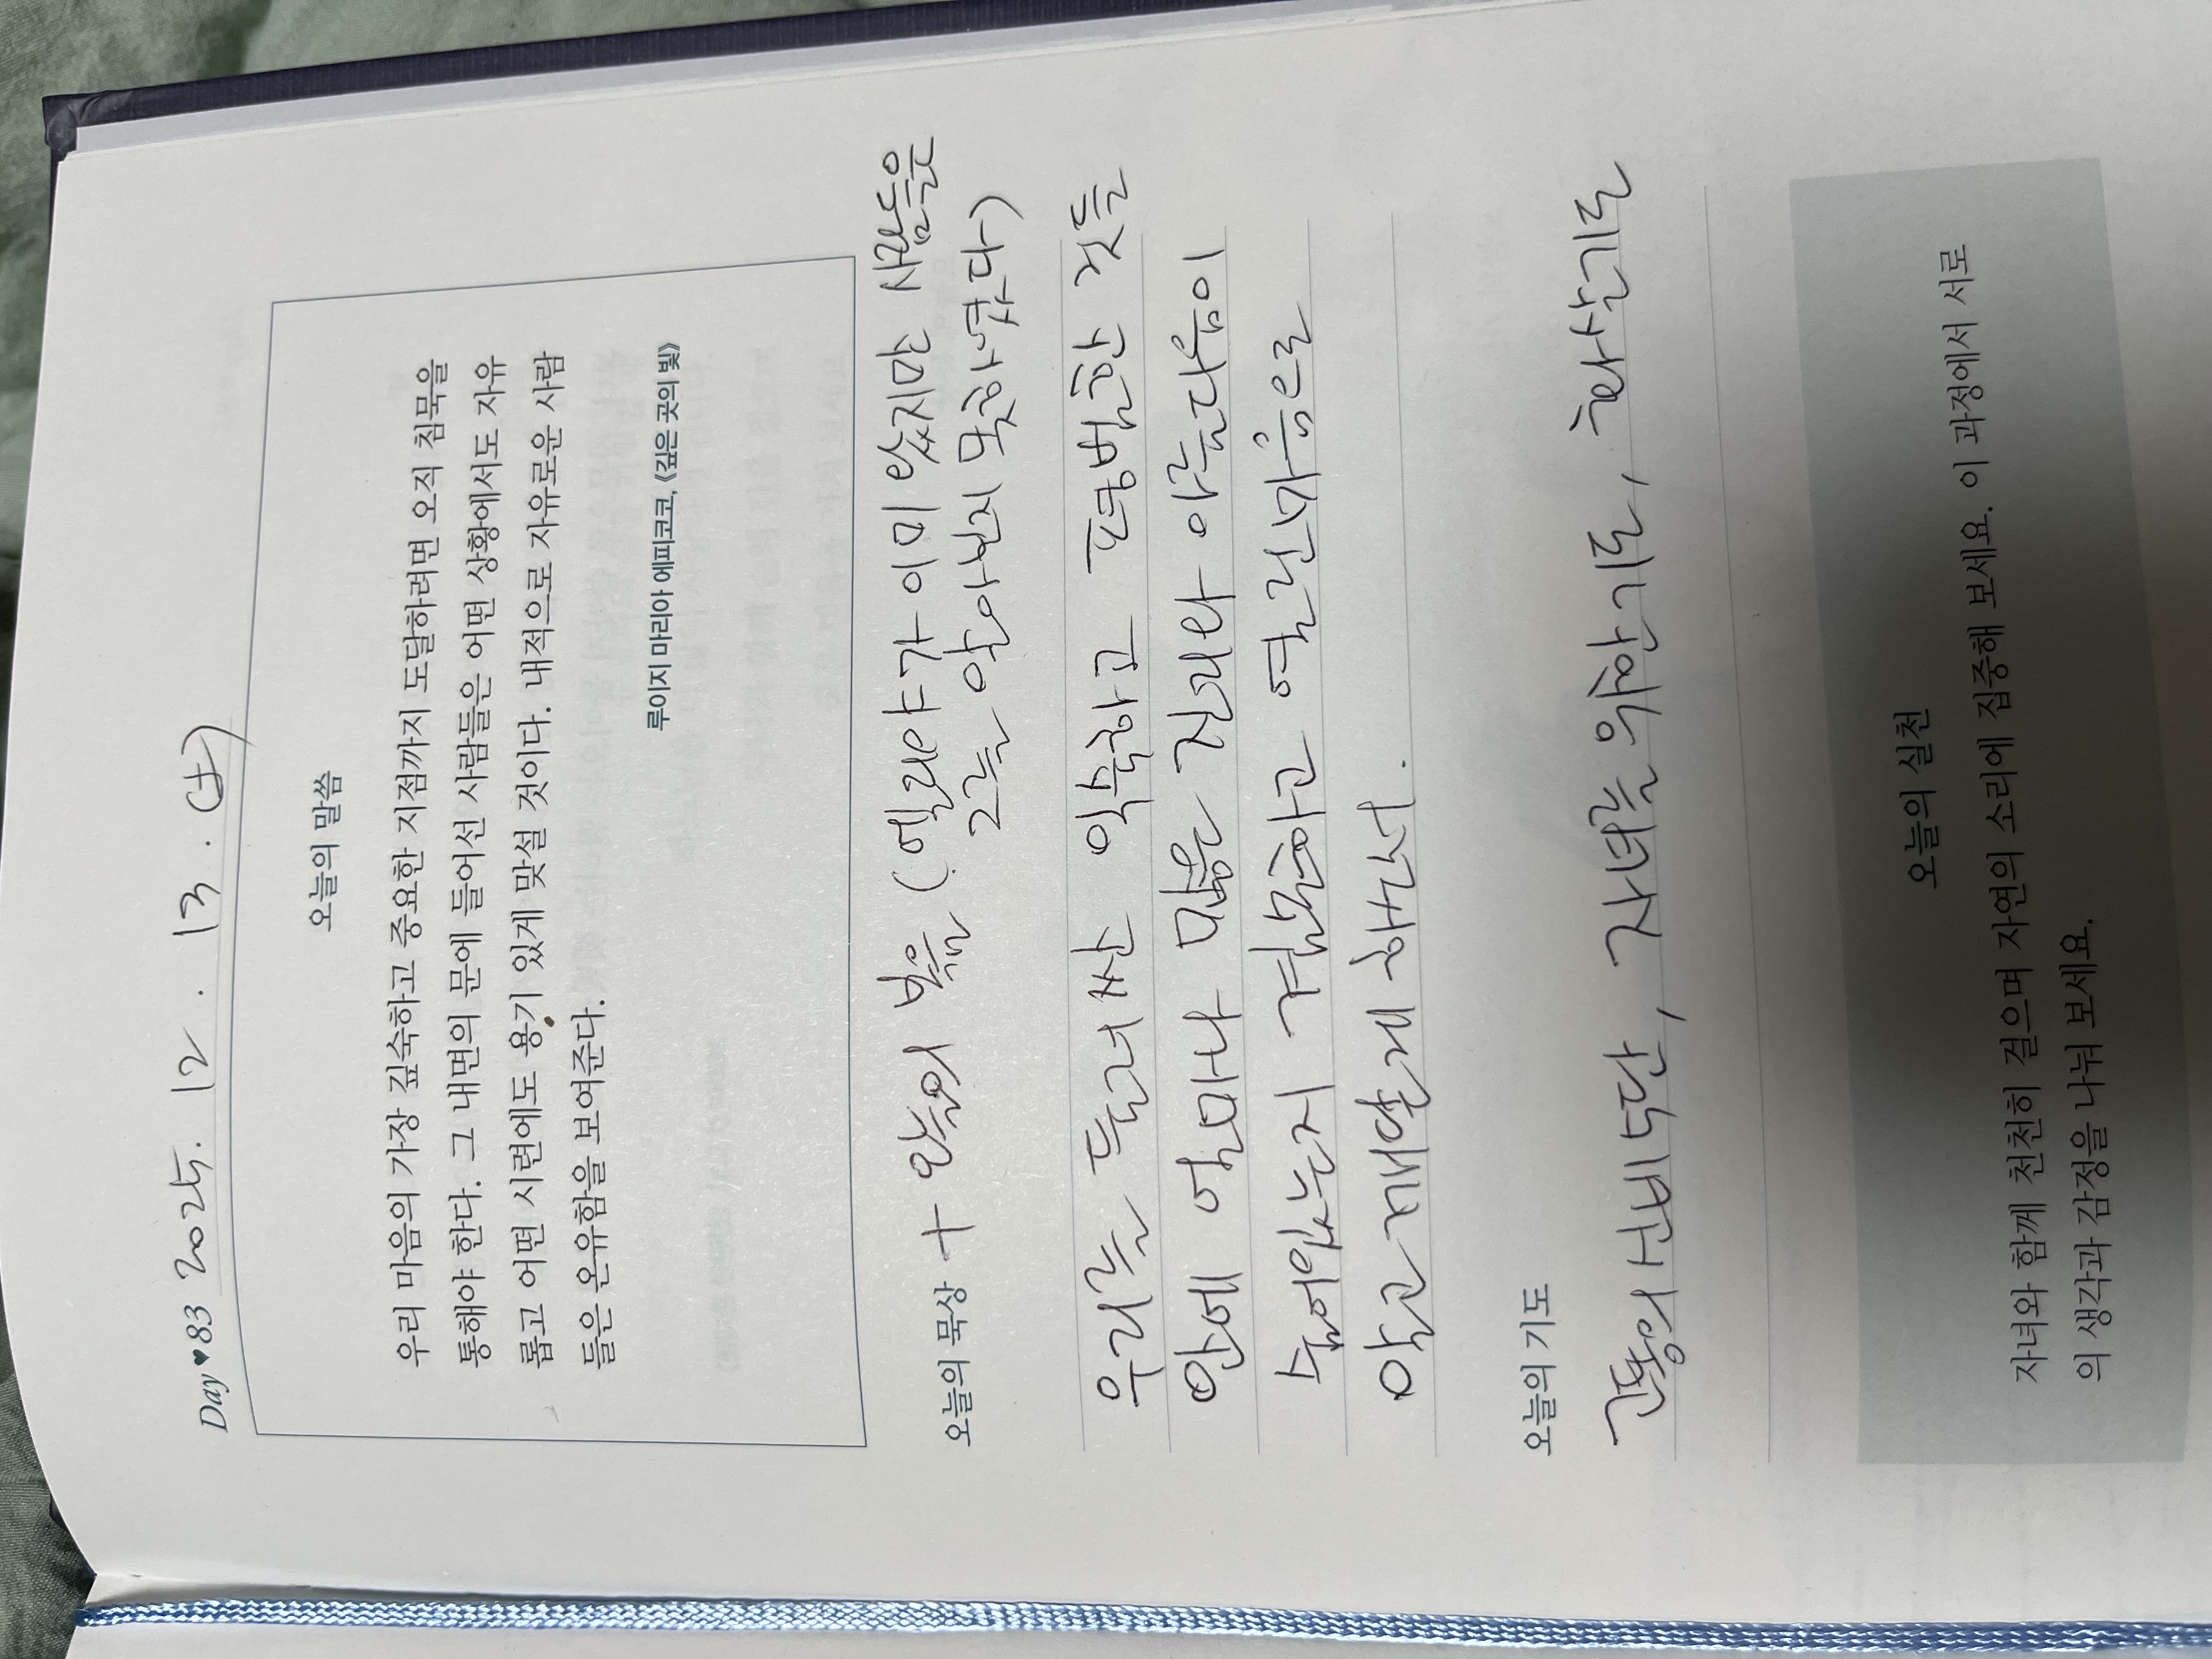 Day♥83 2025. 12. 13. (土)
오늘의 말씀
우리 마음의 가장 깊숙하고 중요한 지점까지 도달하려면 오직 침묵을
통해야 한다. 그 내면의 문에 들어선 사람들은 어떤 상황에서도 자유
롭고 어떤 시련에도 용기 있게 맞설 것이다. 내적으로 자유로운 사람
들은 온유함을 보여준다.
루이지 마리아 에피코코, 《깊은 곳의 빛》
오늘의 묵상 + 오늘의 복음 (엘리야가 이미 왔지만 사람들은
그를 알아보지 못하였다)
우리를 둘러싼 익숙하고 평범한 것들
안에 얼마나 많은 진리와 아름다움이
숨어있는지 겸손하고 열린마음으로
알고 깨닫게 하소서.
오늘의 기도
고통의 신비 5단, 자녀를 위한기도, 화살기도
오늘의 실천
자녀와 함께 천천히 걸으며 자연의 소리에 집중해 보세요. 이 과정에서 서로
의 생각과 감정을 나눠 보세요.